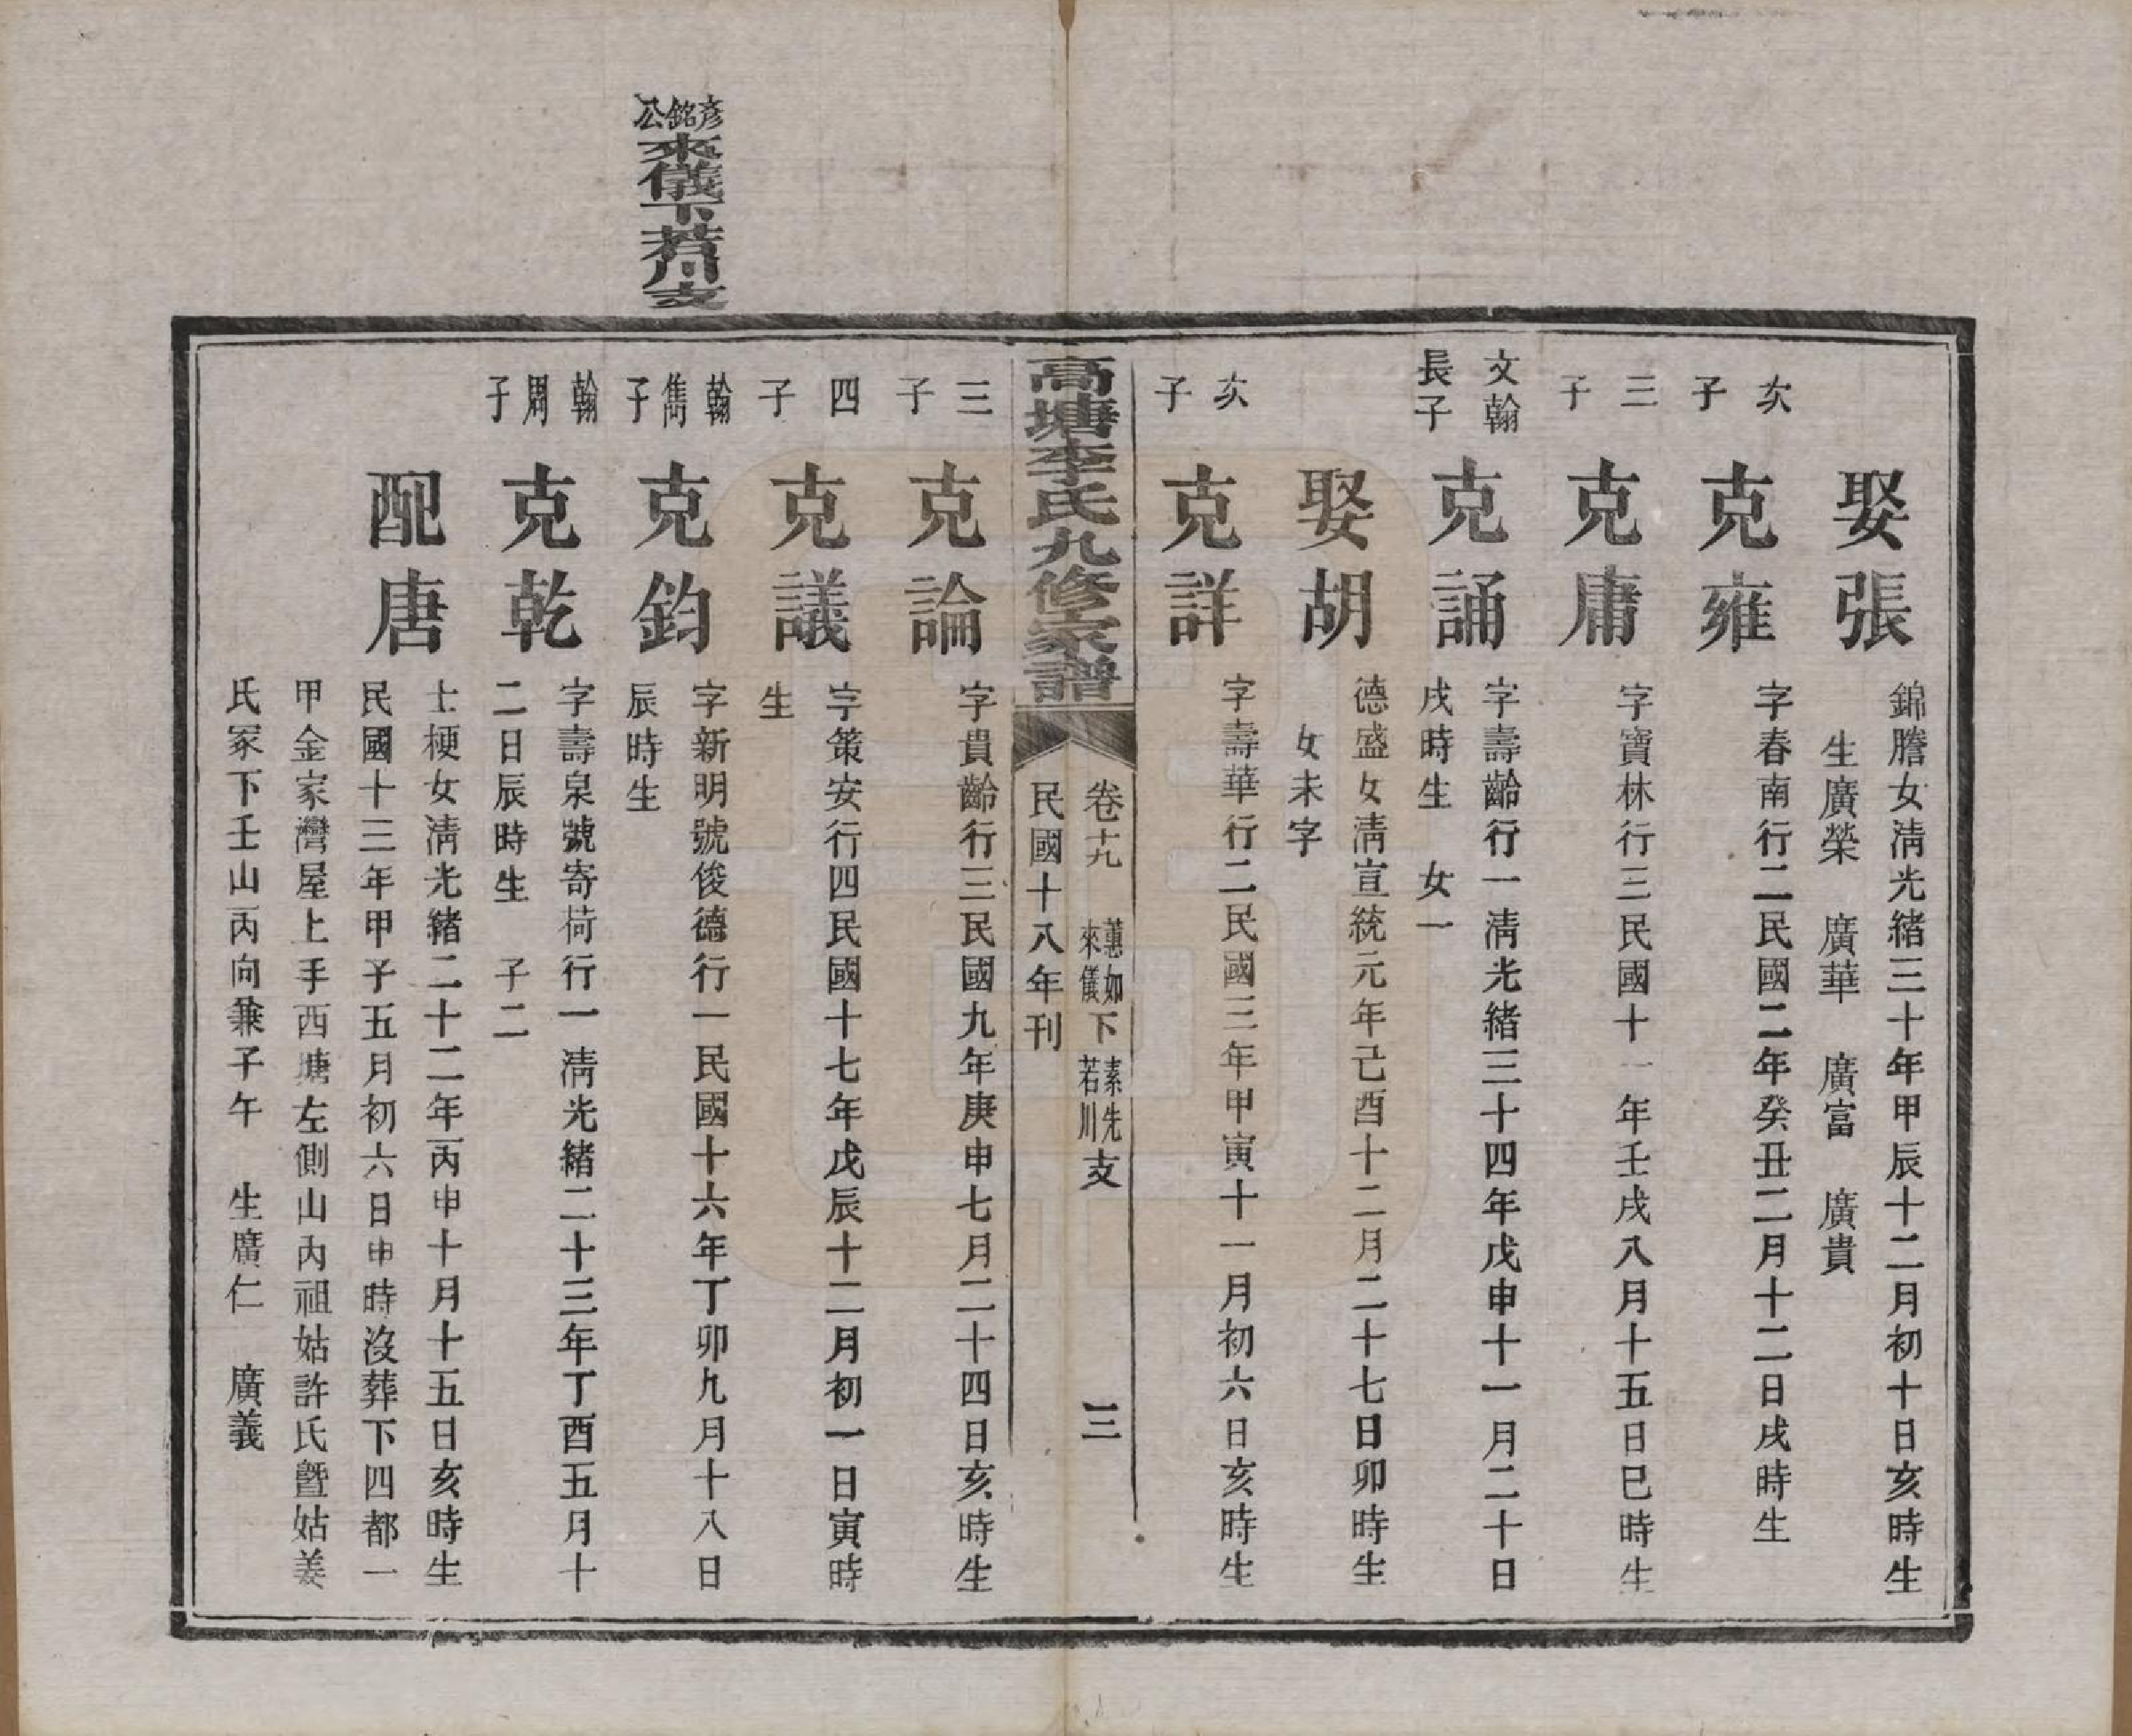 彥銘公來儀下若川支
娶張
錦膽女淸光緖三十年甲辰十二月初十日亥時生
生廣榮　廣華　廣富　廣貴
次子
克雍
字春南行二民國二年癸丑二月十二日戌時生
三子
克庸
字寶林行三民國十一年壬戌八月十五日巳時生
文翰長子
克誦
字壽齡行一淸光緖三十四年戊申十一月二十日
戌時生　女一
娶胡
德盛女淸宣統元年己酉十二月二十七日卯時生
女未字
次子
克詳
字壽華行二民國三年甲寅十一月初六日亥時生
高塘李氏九修家譜
卷十九　蕙如來儀下素先若川支　三
民國十八年刊
三子
克論
字貴齡行三民國九年庚申七月二十四日亥時生
四子
克議
字策安行四民國十七年戊辰十二月初一日寅時
生
翰雋子
克鈞
字新明號俊德行一民國十六年丁卯九月十八日
辰時生
翰周子
克乾
字壽泉號寄荷行一淸光緖二十三年丁酉五月十
二日辰時生　子二
配唐
士梗女淸光緖二十二年丙申十月十五日亥時生
民國十三年甲子五月初六日申時沒葬下四都一
甲金家灣屋上手西塘左側山內祖姑許氏曁姑姜
氏冢下壬山丙向兼子午　生廣仁　廣義